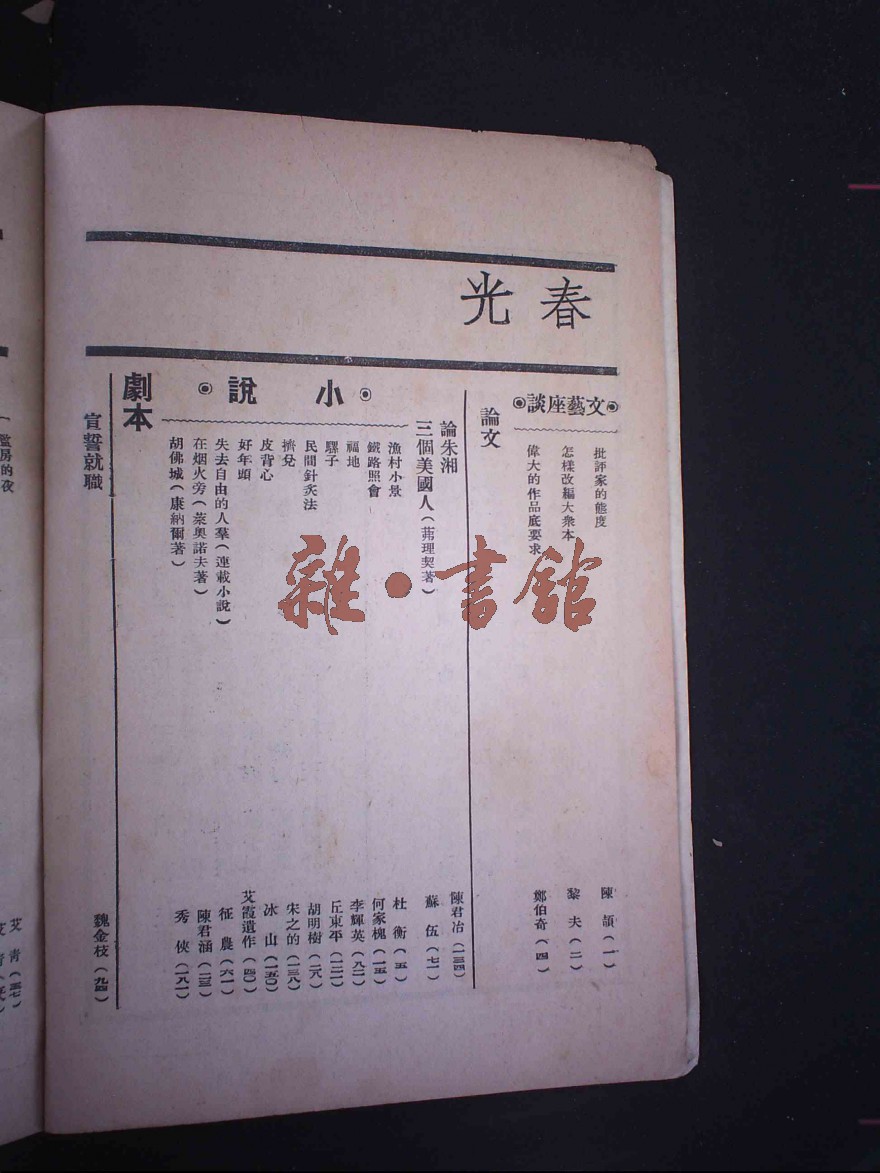 春光
◉文藝座談◉
批評家的態度 陳頡(一)
怎樣改編大衆本 黎夫(二)
偉大的作品底要求 鄭伯奇(四)
論文
論朱湘 陳君冶(一三四)
三個美國人(茀理契著) 蘇伍(七一)
◉小說◉
漁村小景 杜衡(五)
鐵路照會 何家槐(一五)
福地 李輝英(八二)
騾子 丘東平(一二一)
民間針灸法 胡明樹(二八)
擠兌 宋之的(一三八)
皮背心 冰山(一五〇)
好年頭 艾霞遺作(四〇)
失去自由的人羣(連載小說) 征農(六一)
在烟火旁(萊奧諾夫著) 陳君涵
胡佛城(康納爾著) 秀俠(一八一)
劇本
宣誓就職 魏金枝(九四)
房的夜
艾青(三七)
艾青
雜·書館